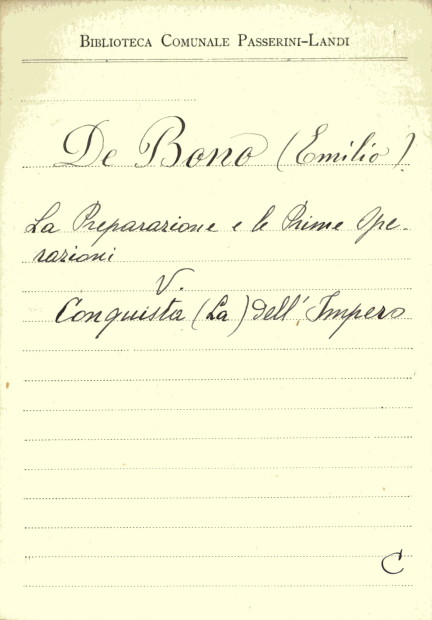 Biblioteca Comunale Passerini-Landi
De Bono (Emilio)
La Preparazione e le Prime Ope-
razioni
V.
Conquista (La) dell' Impero
C